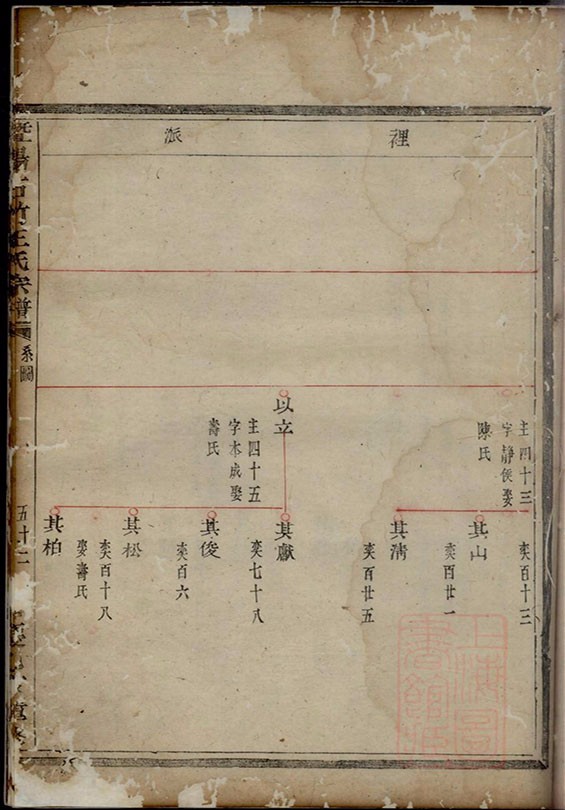 裡
派
主四十三
字靜侯娶
陳氏
以立
主四十五
字本成娶
壽氏
奕百十三
其山
奕百廿一
其淸
奕百廿五
其獻
奕七十八
其俊
奕百六
其松
奕百十八
娶壽氏
其柏
竹王氏宗譜
系圖
五十二
上海圖書館藏